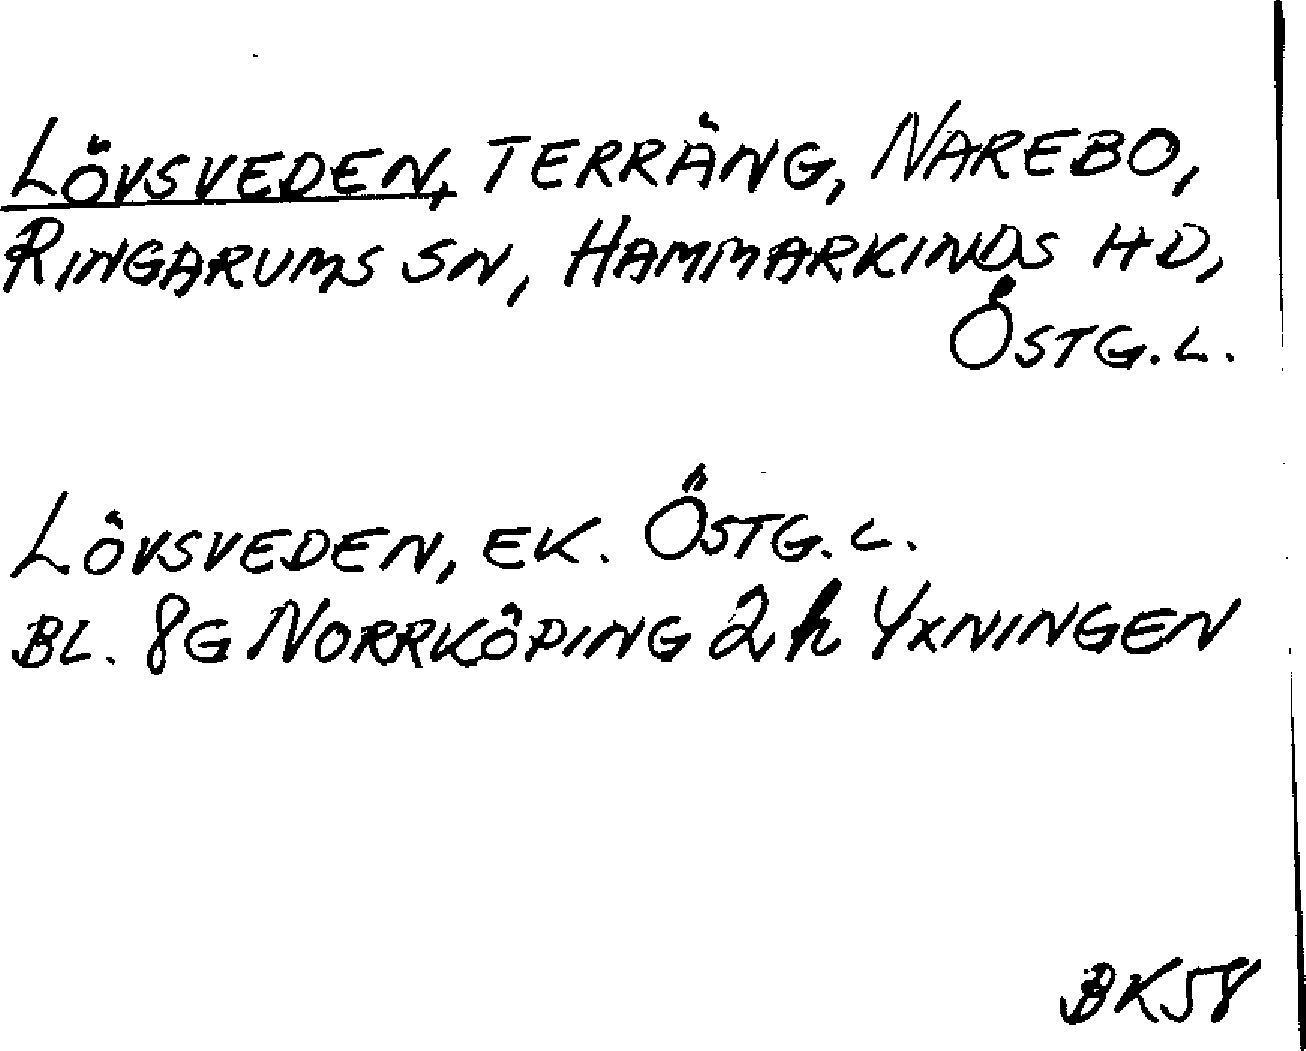 LÖVSVEDEN, TERRÄNG, NAREBO,
RINGARUMS SN, HAMMARKINDS HD,
ÖSTG. L.
LÖVSVEDEN, EK. ÖSTG. L.
BL. 8G NORRKÖPING 2h YXNINGEN
BK58